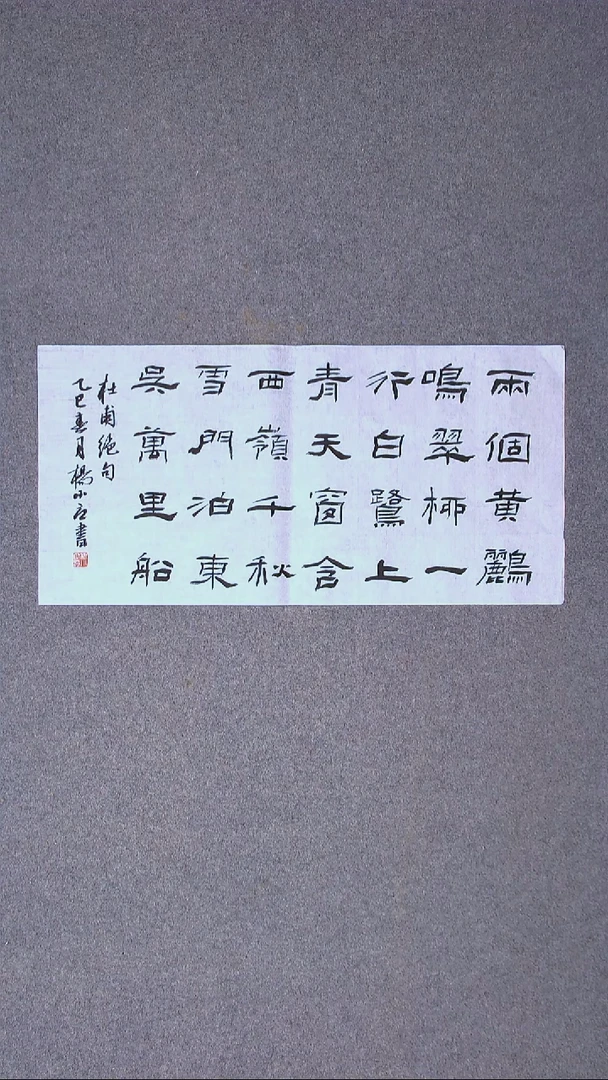 兩個黄鸝
鳴翠柳一
行白鷺上
青天窗含
西嶺千秋
雪門泊東
吳萬里船
杜甫絕句
乙巳春月楊小
書